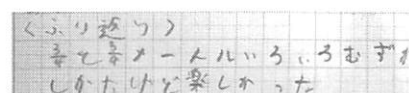 〈ふり返り〉
3/4と3/4メートルいろいろむずか
しかたけど楽しかった